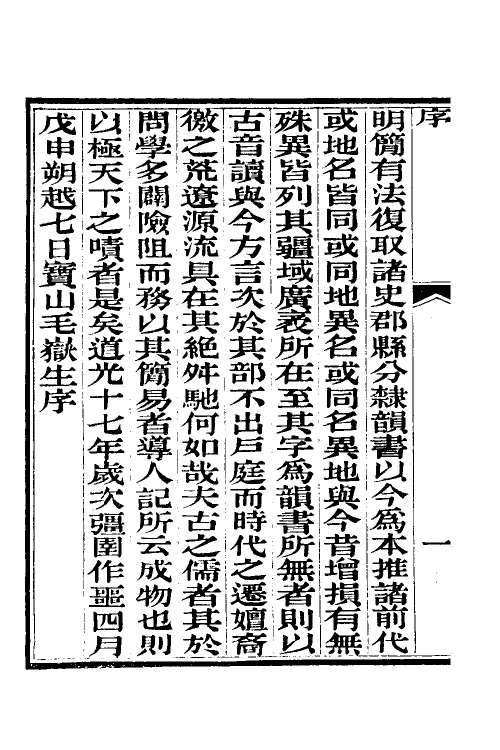 序
一
明簡有法復取諸史郡縣分隸韻書以今為本推諸前代
或地名皆同或同地異名或同名異地與今昔增損有無
殊異皆列其疆域廣袤所在至其字為韻書所無者則以
古音讀與今方言次於其部不出戶庭而時代之遷嬗裔
徼之荒遼源流具在其絕舛馳何如哉夫古之儒者其於
問學多闢險阻而務以其簡易者導人記所云成物也則
以極天下之嘖者是矣道光十七年歲次彊圉作噩四月
戊申朔越七日寶山毛嶽生序